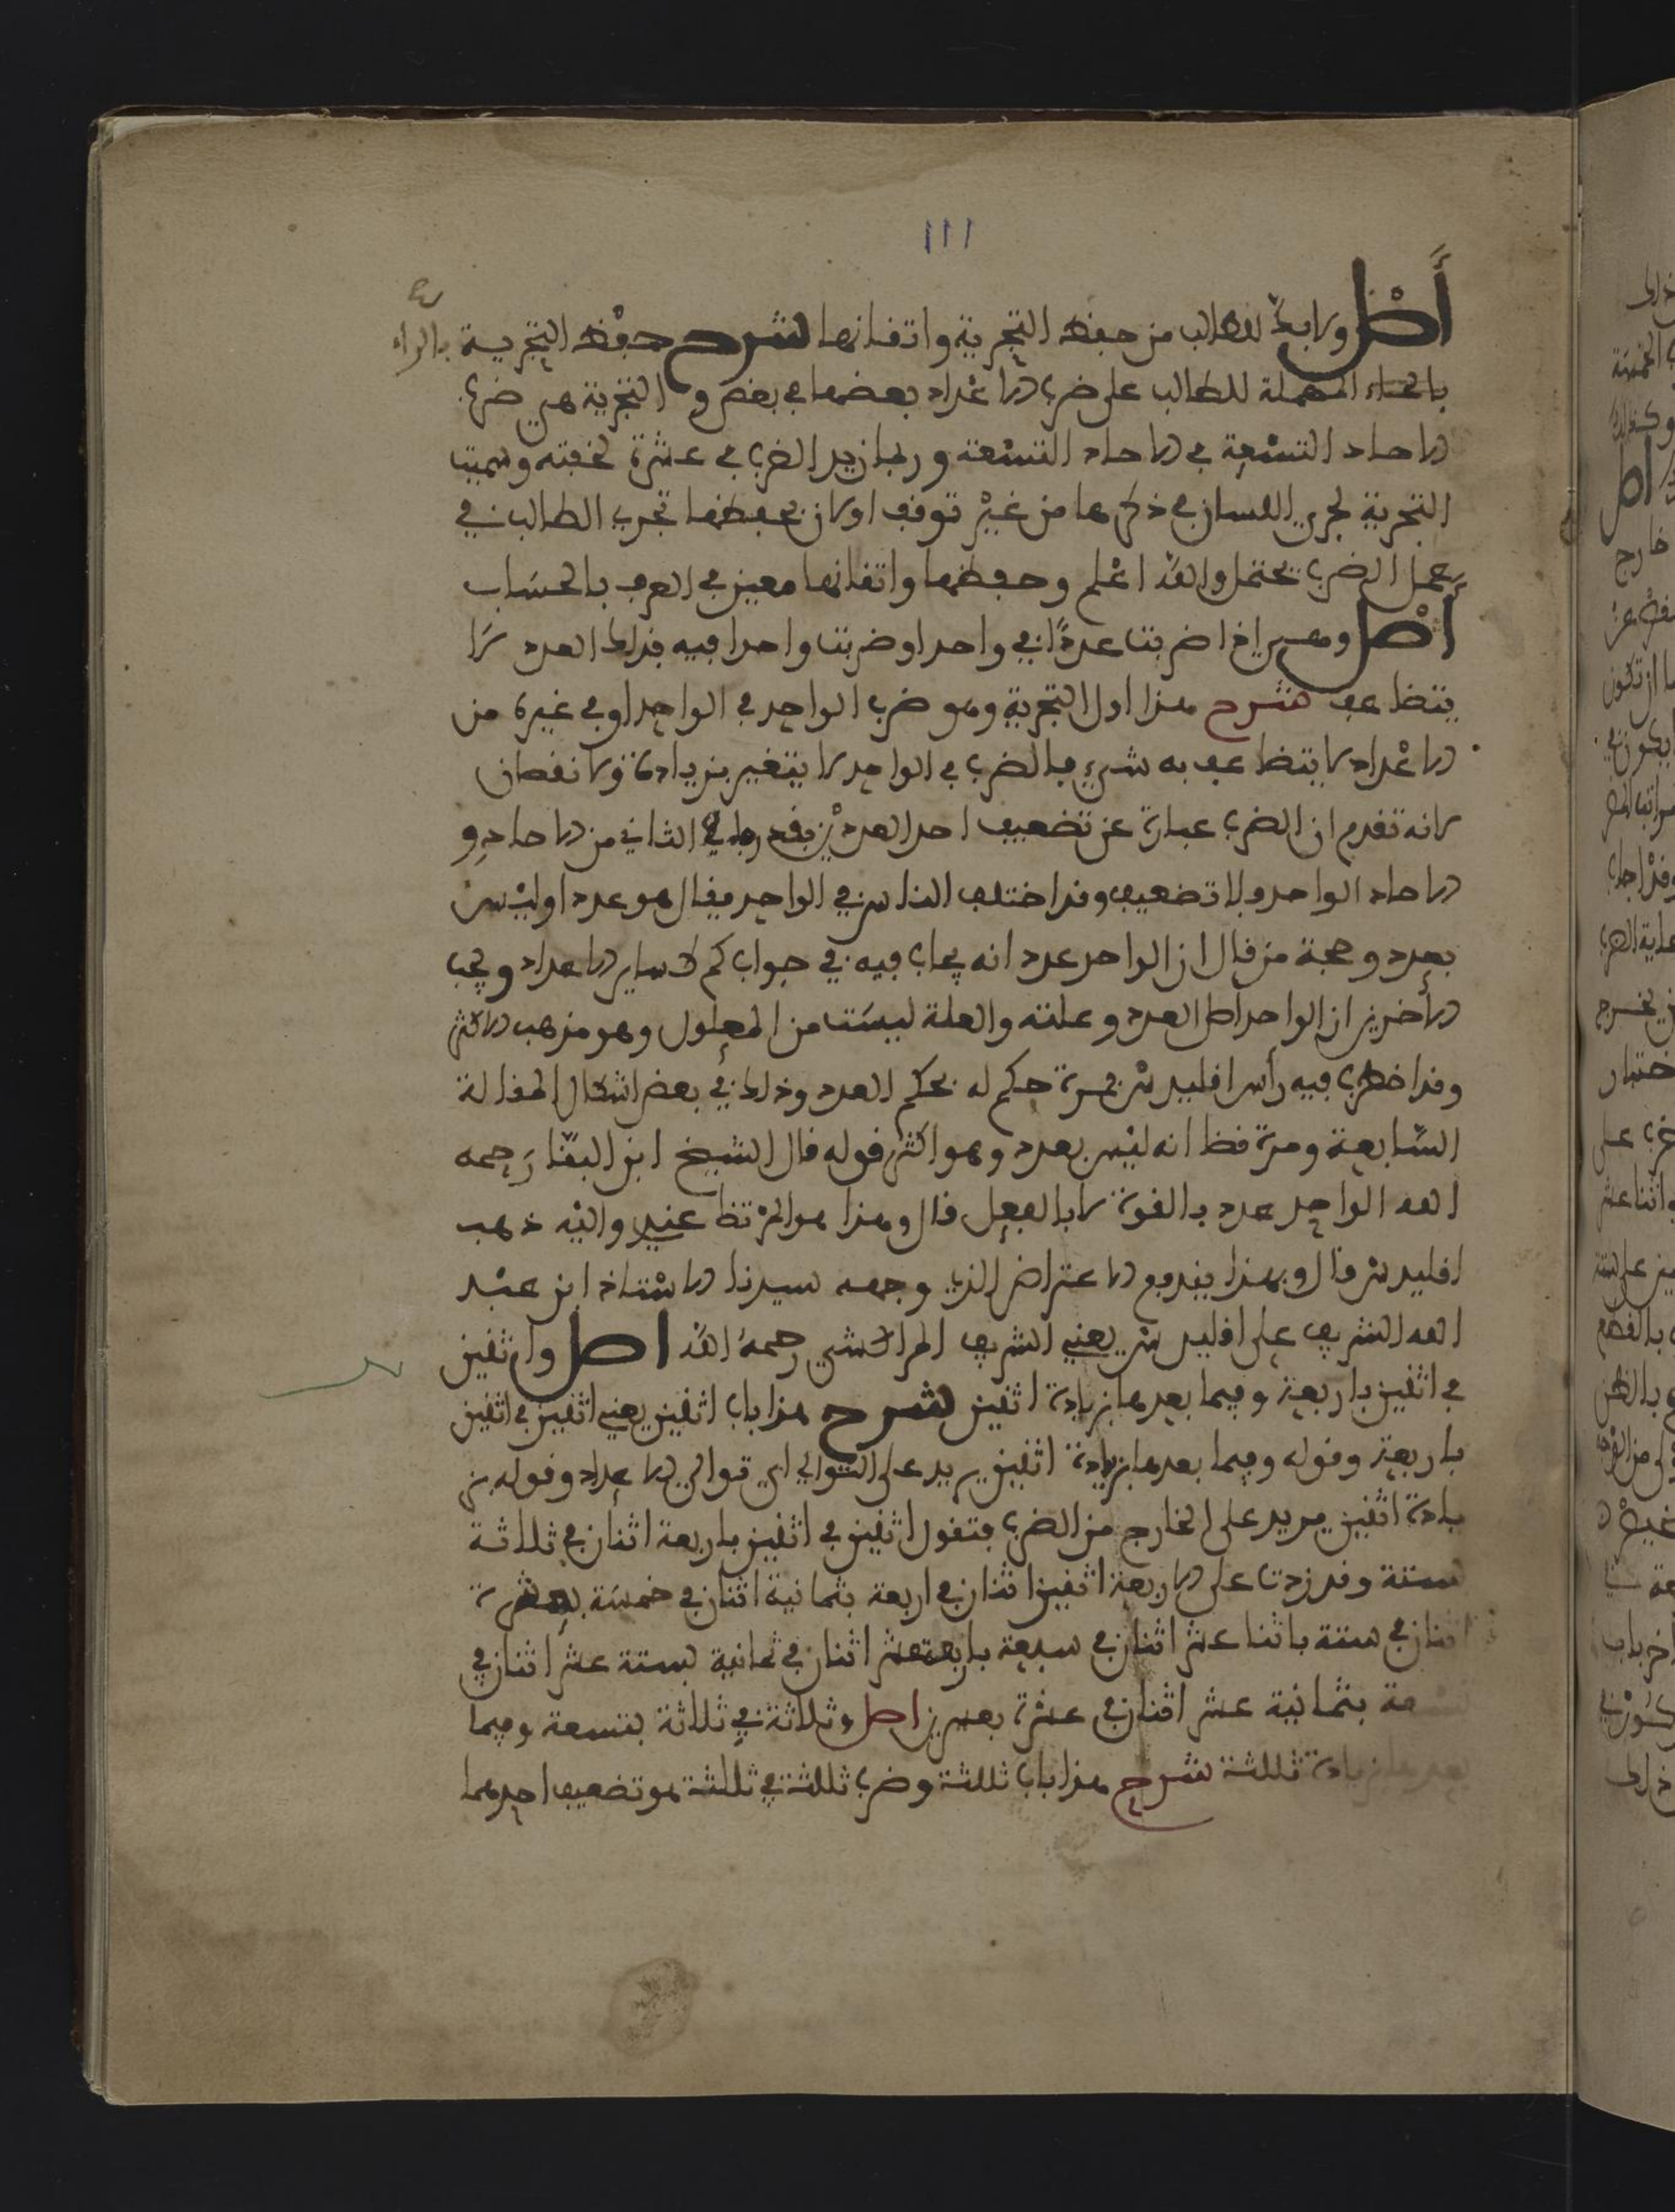 ١١١
أصل ولا بد للطالب من حفظ التجربة واتقانها شرح حفظ التجربة بالراء
بالحاء المهملة للطالب على ضرب الاعداد بعضها في بعض والتجربة هي ضرب
الاحاد التسعة في الاحاد التسعة وربما زيد الضرب في عشرة لخفته وسميت
التجربة لجري اللسان في ذكرها من غير توقف او لان بحفظها تجرب الطالب في
عمل الضرب يحتمل والله اعلم وحفظها واتقانها معين في العرف بالحساب
أصل ومهم إذا ضربت عددا في واحد او ضربت واحدا فيه فذلك العدد لا
يتضاعف شرح هذا اول التجربة وهو ضرب الواحد في الواحد او في غيره من
الاعداد لا يتضاعف به شيء فالضرب في الواحد لا يتغير بزيادة ولا نقصان
لانه تقدم ان الضرب عبارة عن تضعيف احد العددين بقدر ما في الثاني من الاحاد و
الاحاد الواحد ولا تضعيف وقد اختلف الناس في الواحد فقال هو عدد او ليس
بعدد وحجة من قال ان الواحد عدد انه يجاب فيه في جواب كم كساير الاعداد وحجب
الأخرين ان الواحد اصل العدد وعلته والعلة ليست من المعلول وهو مذهب الاكثر
وقد اضطرب فيه رأس اقليدس فمرة حكم له بحكم العدد وذلك في بعض اشكال المقالة
السابعة ومرة قضا انه ليس بعدد وهو اكثر قوله قال الشيخ ابن البنا رحمه
الله الواحد عدد بالقوة لا بالفعل قال وهذا هو المرتضا عندي واليه ذهب
اقليدس قال وبهذا يندفع الاعتراض الذي وجهه سيدنا الاستاذ ابن عبد
الله الشريف على اقليدس يعني الشريف المراكشي رحمه الله اصل واثنين
في اثنين باربعة وفيما بعدها بزيادة اثنين شرح هذا باب اثنين يعني اثنين في اثنين
باربعة وقوله وفيما بعدها بزيادة اثنين يريد على التوالي اي توالي الاعداد وقوله بز
يادة اثنين يريد على الخارج من الضرب فتقول اثنين في اثنين باربعة اثنان في ثلاثة
بستة وقد زدت على الاربعة اثنين اثنان في اربعة بثمانية اثنان في خمسة بعشرة
اثنان في ستة باثنا عشر اثنان في سبعة باربعة عشر اثنان في ثمانية بستة عشر اثنان في
تسعة بثمانية عشر اثنان في عشرة بعشرين اصل وثلاثة في ثلاثة بتسعة وفيما
بعدها بزيادة ثلثة شرح هذا باب ثلثة وضرب ثلثة في ثلثة هو تضعيف احدهما